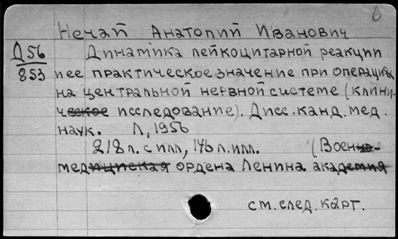 Нечай Анатолий Иванович
Д56
853
Динамика лейкоцитарной реакции
и ее практическое значение при операциях
на центральной нервной системе (клини-
ческое исследование). Дисс. канд. мед.
наук. Л, 1956
218 л. с илл, 146 л. илл. (Военно-
медицинская ордена Ленина академия
см. след. карт.